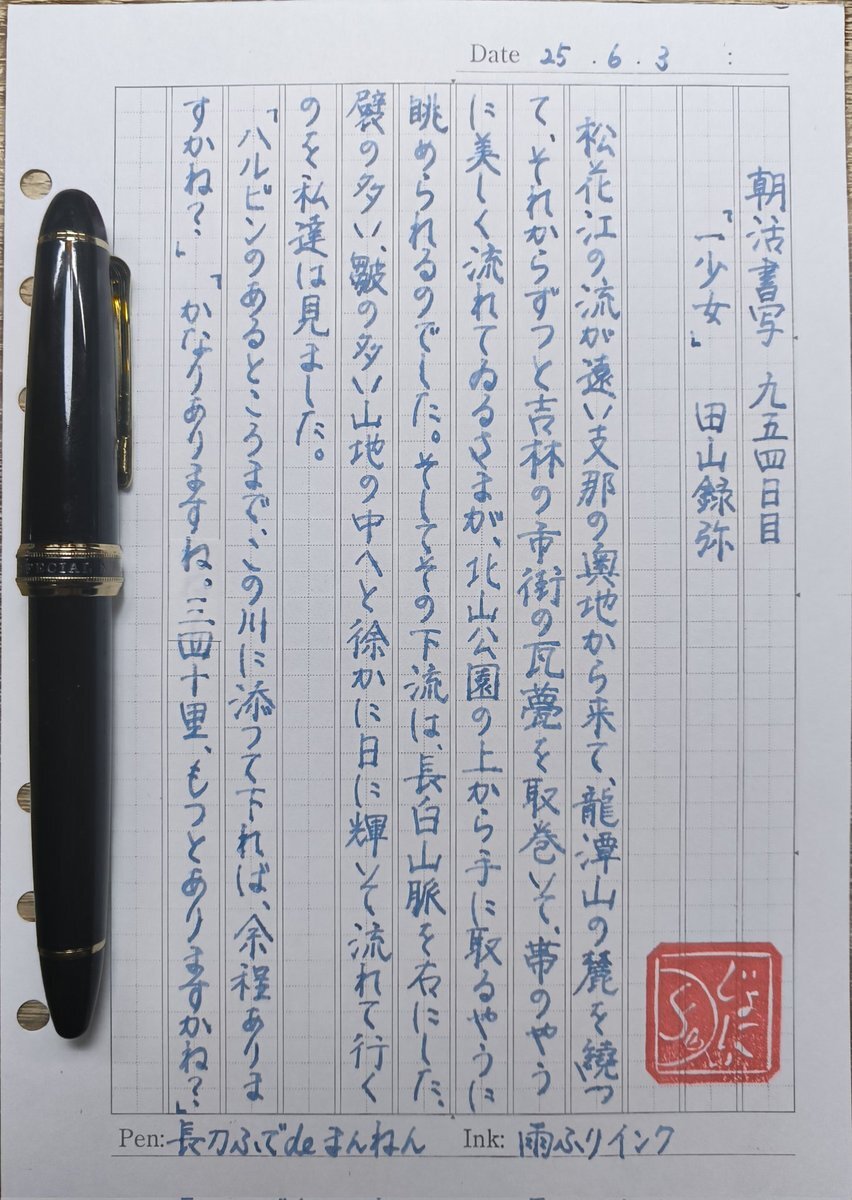 Date 25.6.3 :
朝活書写 九五四日目
「一少女」 田山録弥
松花江の流が遠い支那の奥地から来て、龍潭山の麓を繞つ
て、それからずつと吉林の市街の瓦甍を取巻いて、帯のやう
に美しく流れてゐるさまが、北山公園の上から手に取るやうに
眺められるのでした。そしてその下流は、長白山脈を右にした、
襞の多い、皺の多い山地の中へと徐かに日に輝いて流れて行く
のを私達は見ました。
「ハルビンのあるところまで、この川に添つて下れば、余程ありま
すかね？」「かなりありますね。三四十里、もつとありますかね？」
Pen: 長刀ふでdeまんねん Ink: 雨ふりインク
じょにぃ
SPECIAL